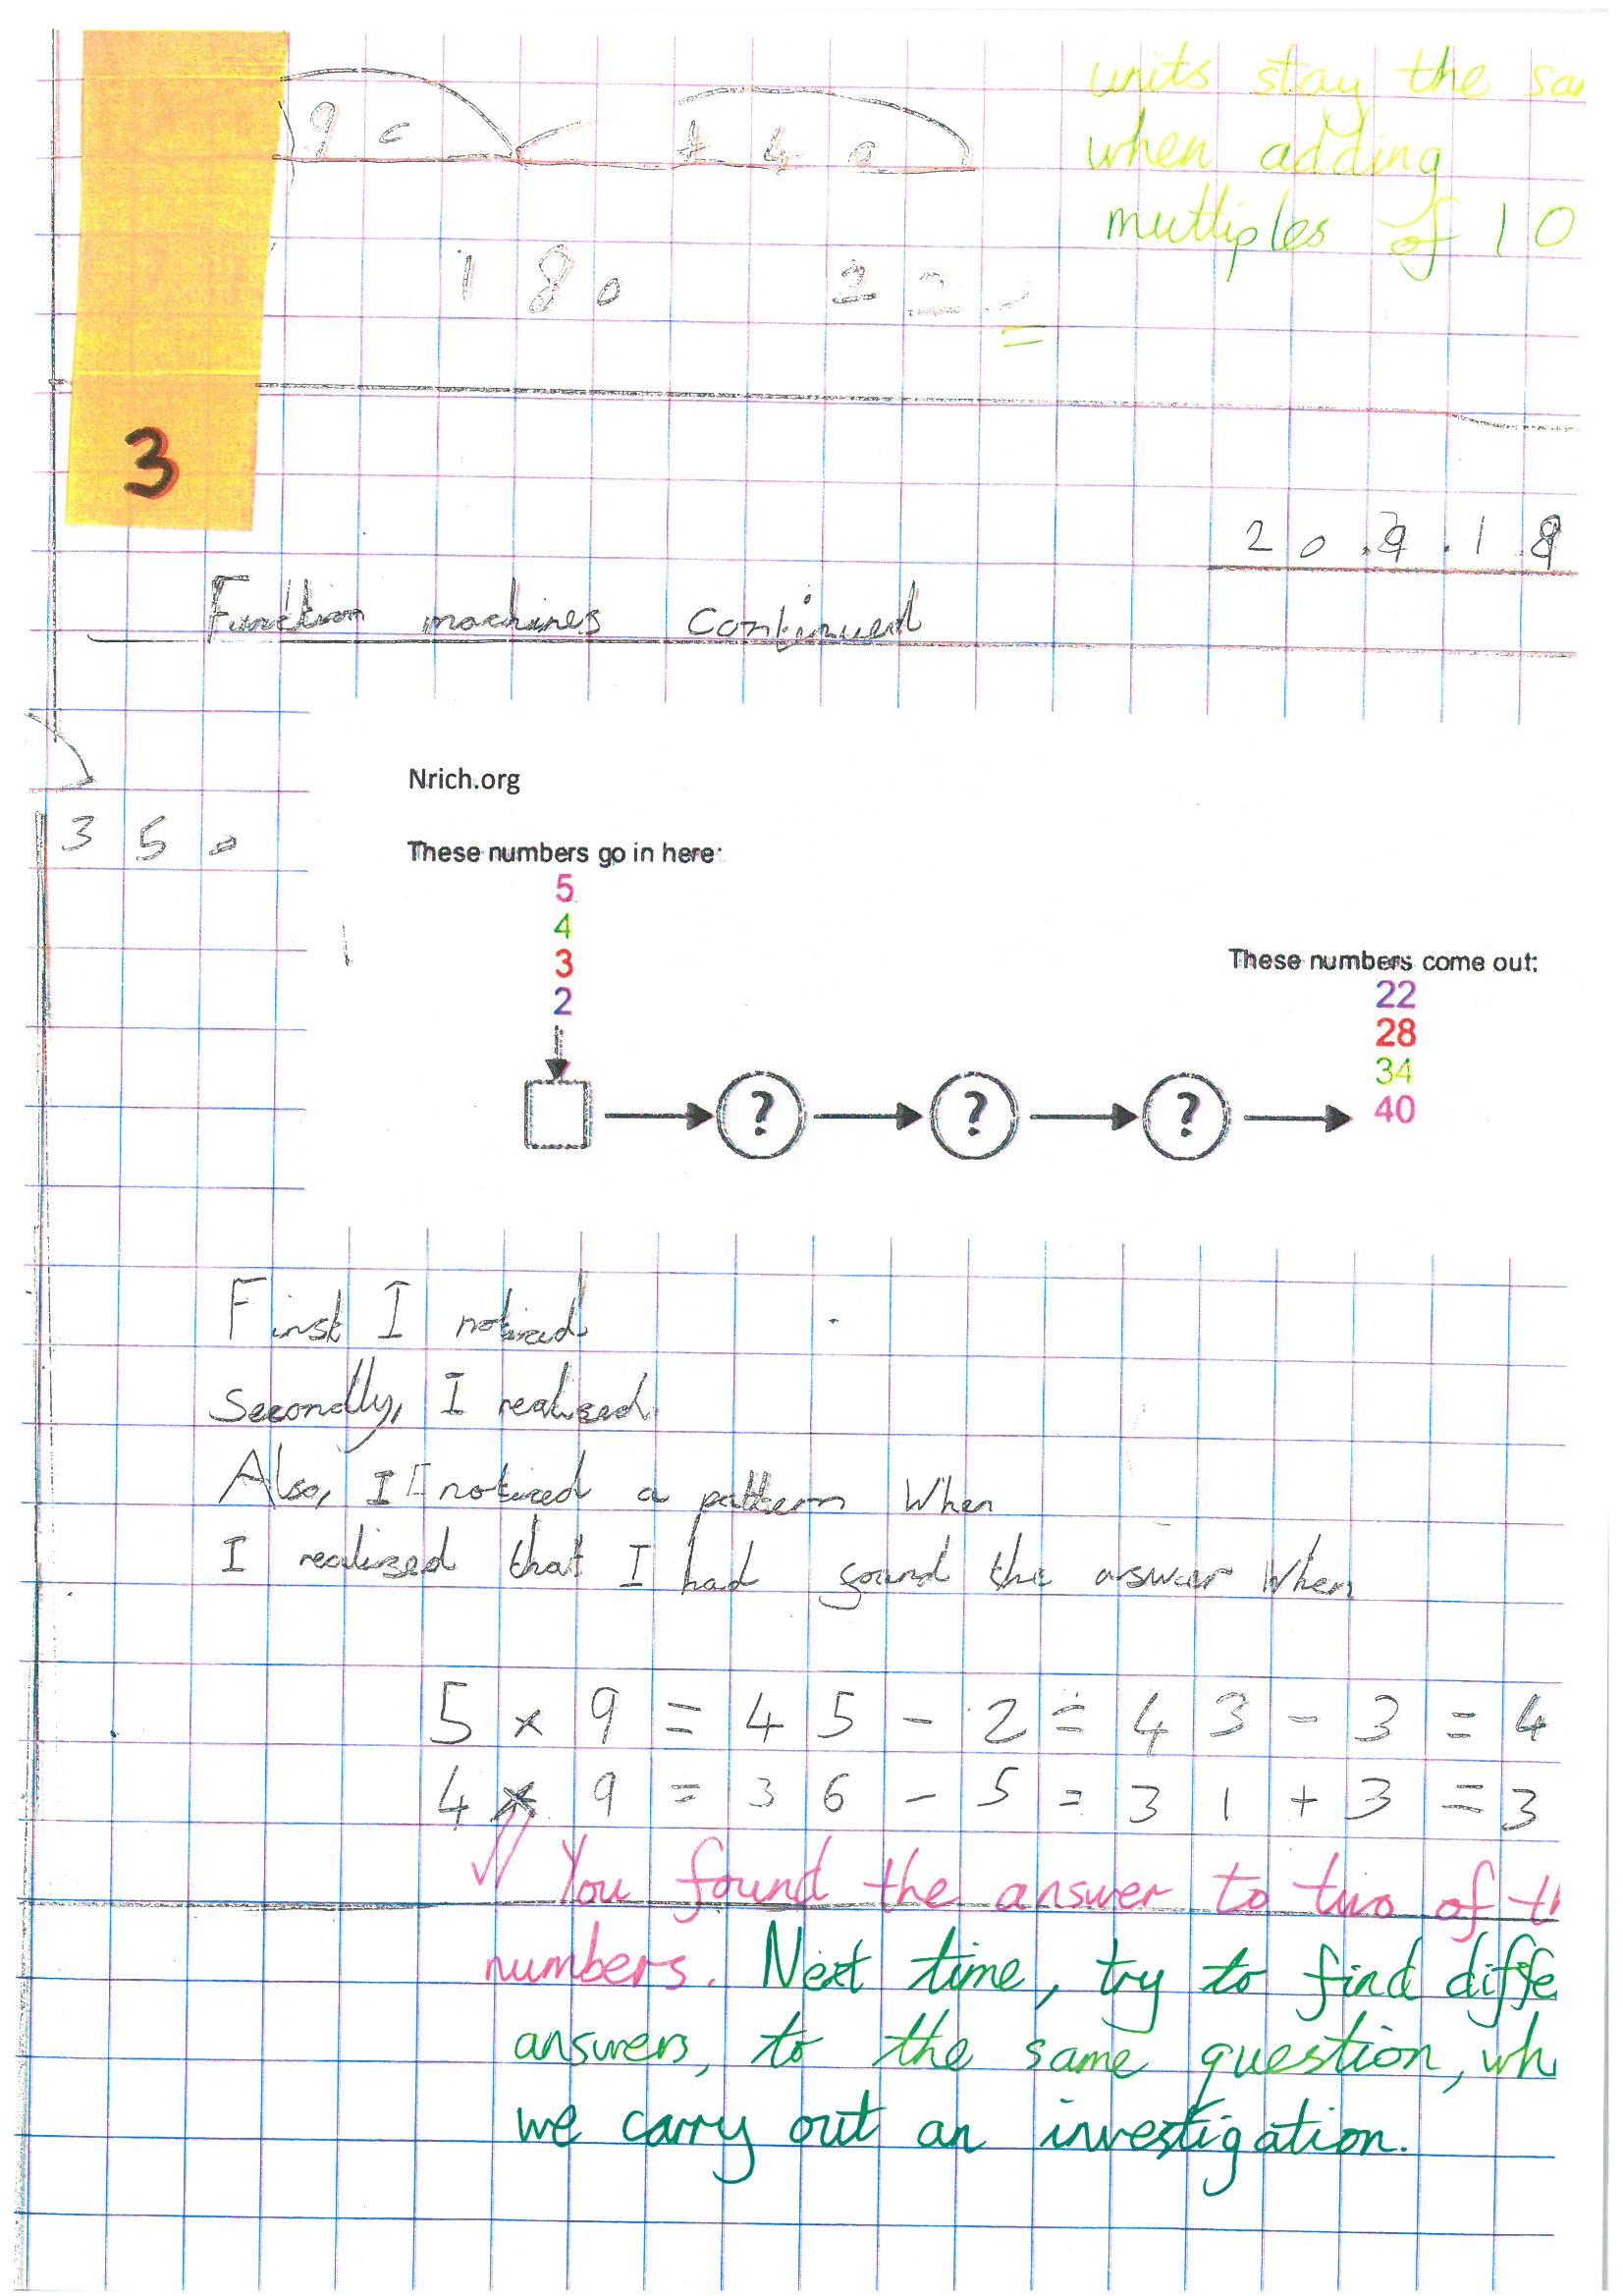 units stay the sa
when adding
multiples of 10
+ 4 0
1 8 0
2 2
3
20.9.18
Function machines continued
Nrich.org
3 5 0
These numbers go in here:
5
4
3
2
These numbers come out:
22
28
34
40
? ? ?
First I noticed
Secondly, I realised
Also, I noticed a pattern When
I realised that I had gound the answer When
5 × 9 = 4 5 - 2 = 4 3 - 3 = 4
4 × 9 = 3 6 - 5 = 3 1 + 3 = 3
You found the answer to two of t
numbers. Next time, try to find diffe
answers, to the same question, wh
we carry out an investigation.